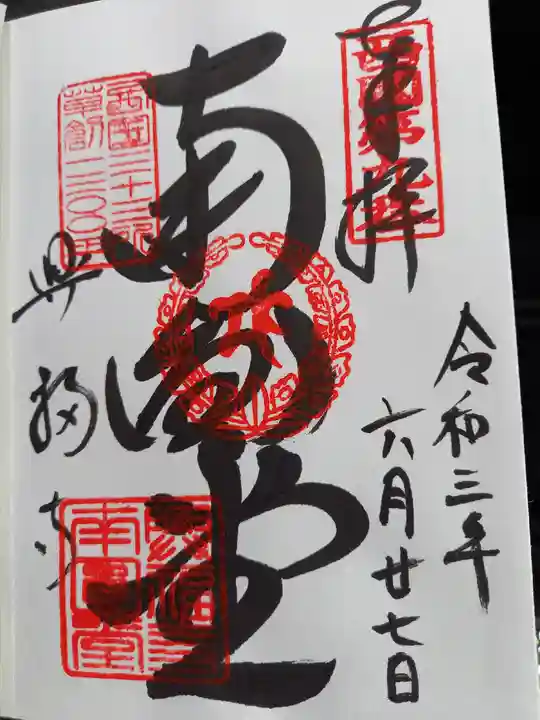 奉拝
西国第九番
令和三年
六月廿七日
南圓堂
西国三十三所
草創一三〇〇年
興福寺
興福寺
南圓堂